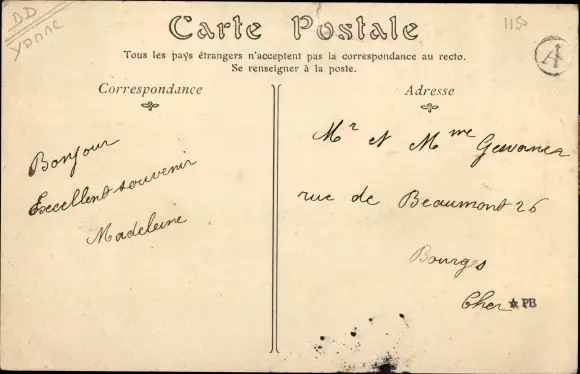 DD
YONNE
1150
Carte Postale
A
Tous les pays étrangers n'acceptent pas la correspondance au recto.
Se renseigner à la poste.
Correspondance
Bonjour
Excellent souvenir
Madeleine
Adresse
Mr et Mme
rue de Beaumont 26
Bourges
Cher
PB